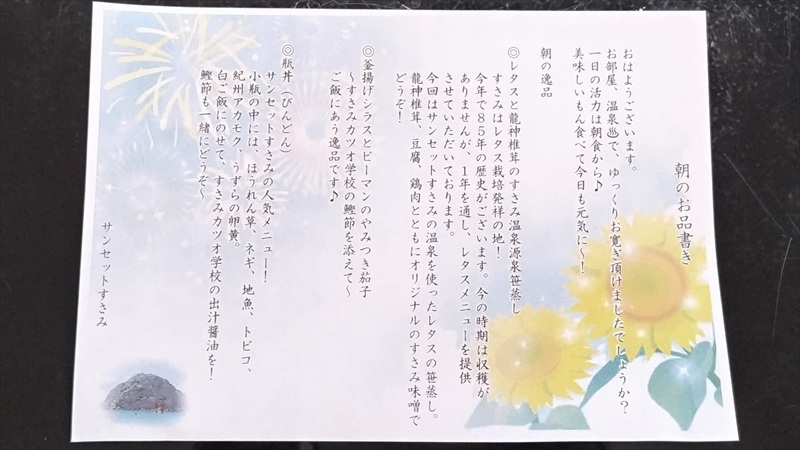 朝のお品書き
おはようございます。
お部屋、温泉♨で、ゆっくりお寛ぎ頂けましたでしょうか？
一日の活力は朝食から♪
美味しいもん食べて今日も元気に～！
朝の逸品
◎レタスと龍神椎茸のすさみ温泉源泉笹蒸し
すさみはレタス栽培発祥の地！
今年で８５年の歴史がございます。今の時期は収穫が
ありませんが、１年を通し、レタスメニューを提供
させていただいております。
今回はサンセットすさみの温泉を使ったレタスの笹蒸し。
龍神椎茸、豆腐、鶏肉とともにオリジナルのすさみ味噌で
どうぞ！
◎釜揚げシラスとピーマンのやみつき茄子
～すさみカツオ学校の鰹節を添えて～
ご飯にあう逸品です♪
◎瓶丼（びんどん）
サンセットすさみの人気メニュー！
小瓶の中には、ほうれん草、ネギ、地魚、トビコ、
紀州アカモク、うずらの卵黄。
白ご飯にのせて、すさみカツオ学校の出汁醤油を！
鰹節も一緒にどうぞ～
サンセットすさみ